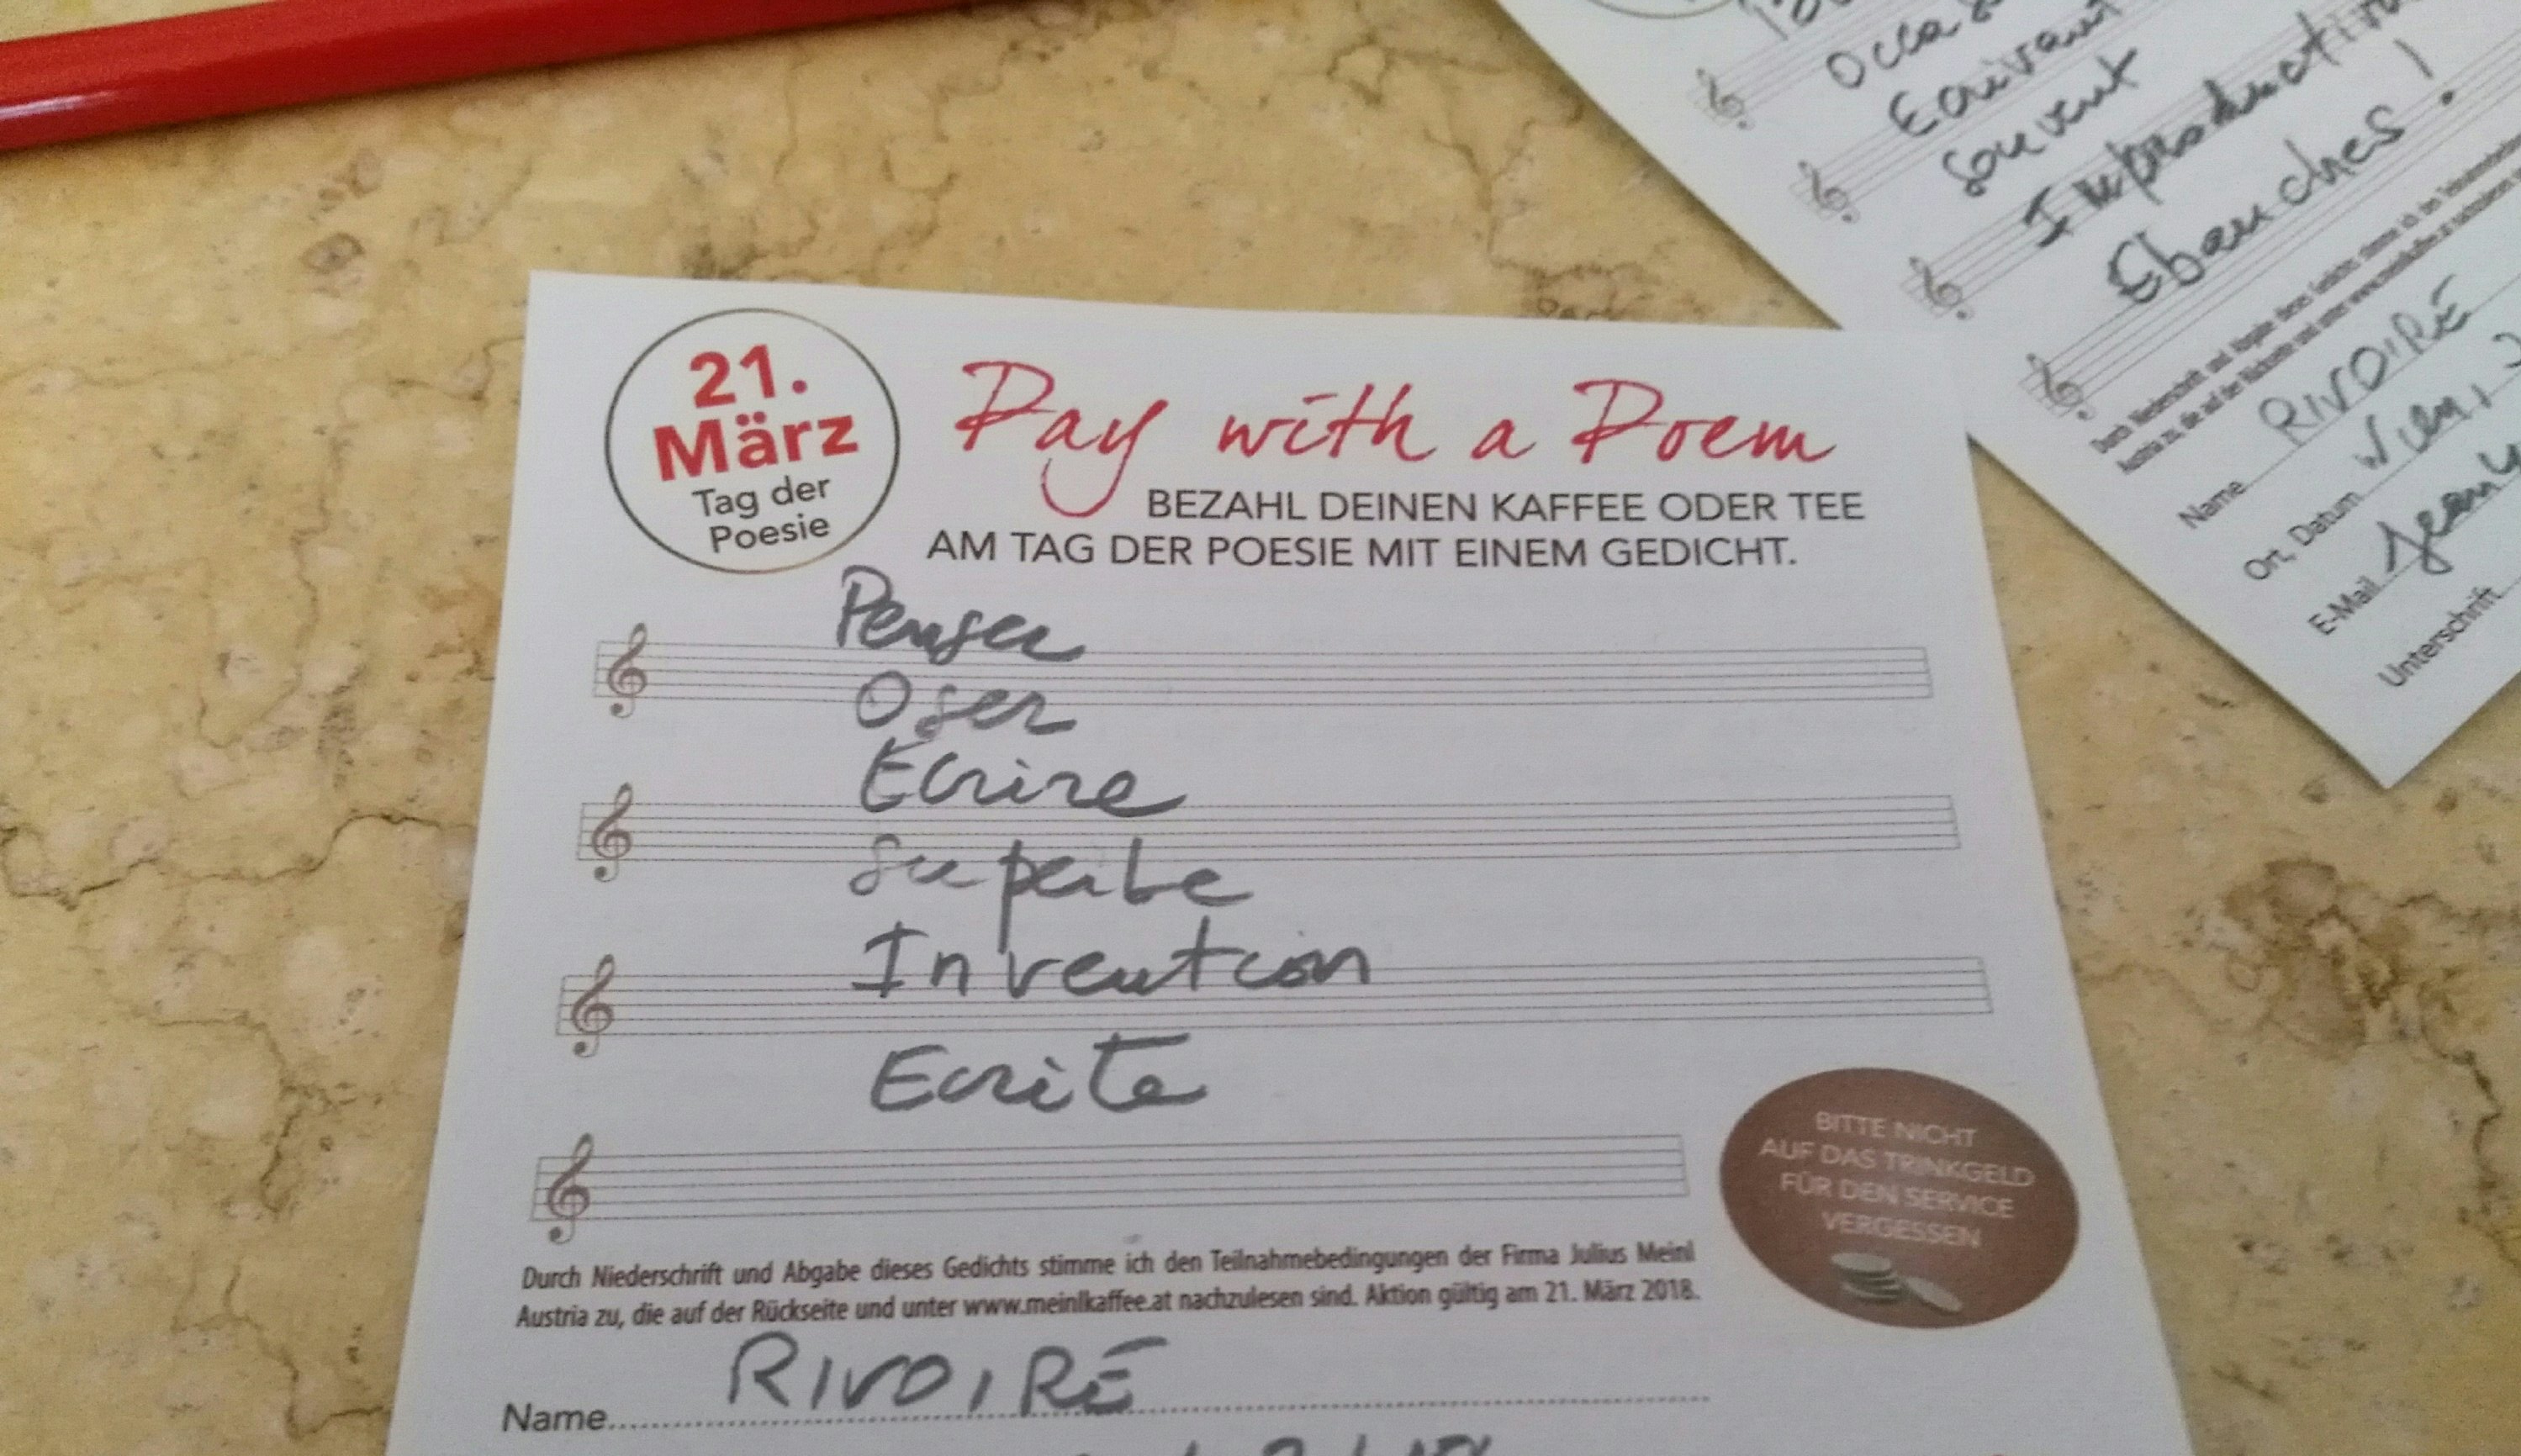 21.
März
Tag der
Poesie
Pay with a Poem
BEZAHL DEINEN KAFFEE ODER TEE
AM TAG DER POESIE MIT EINEM GEDICHT.
Penser
Oser
Ecrire
Superbe
Invention
Ecrite
BITTE NICHT
AUF DAS TRINKGELD
FÜR DEN SERVICE
VERGESSEN
Durch Niederschrift und Abgabe dieses Gedichts stimme ich den Teilnahmebedingungen der Firma Julius Meinl
Austria zu, die auf der Rückseite und unter www.meinlkaffee.at nachzulesen sind. Aktion gültig am 21. März 2018.
Name RIVOIRE
Ecrivant
souvent
Ebauches !
Durch Niederschrift und Abgabe dieses Gedichts stimme ich den
Austria zu, die auf der Rückseite und unter www.meinlkaffee.at nachzulesen
Name RIVOIRE
Ort, Datum Wien,
E-Mail
Unterschrift